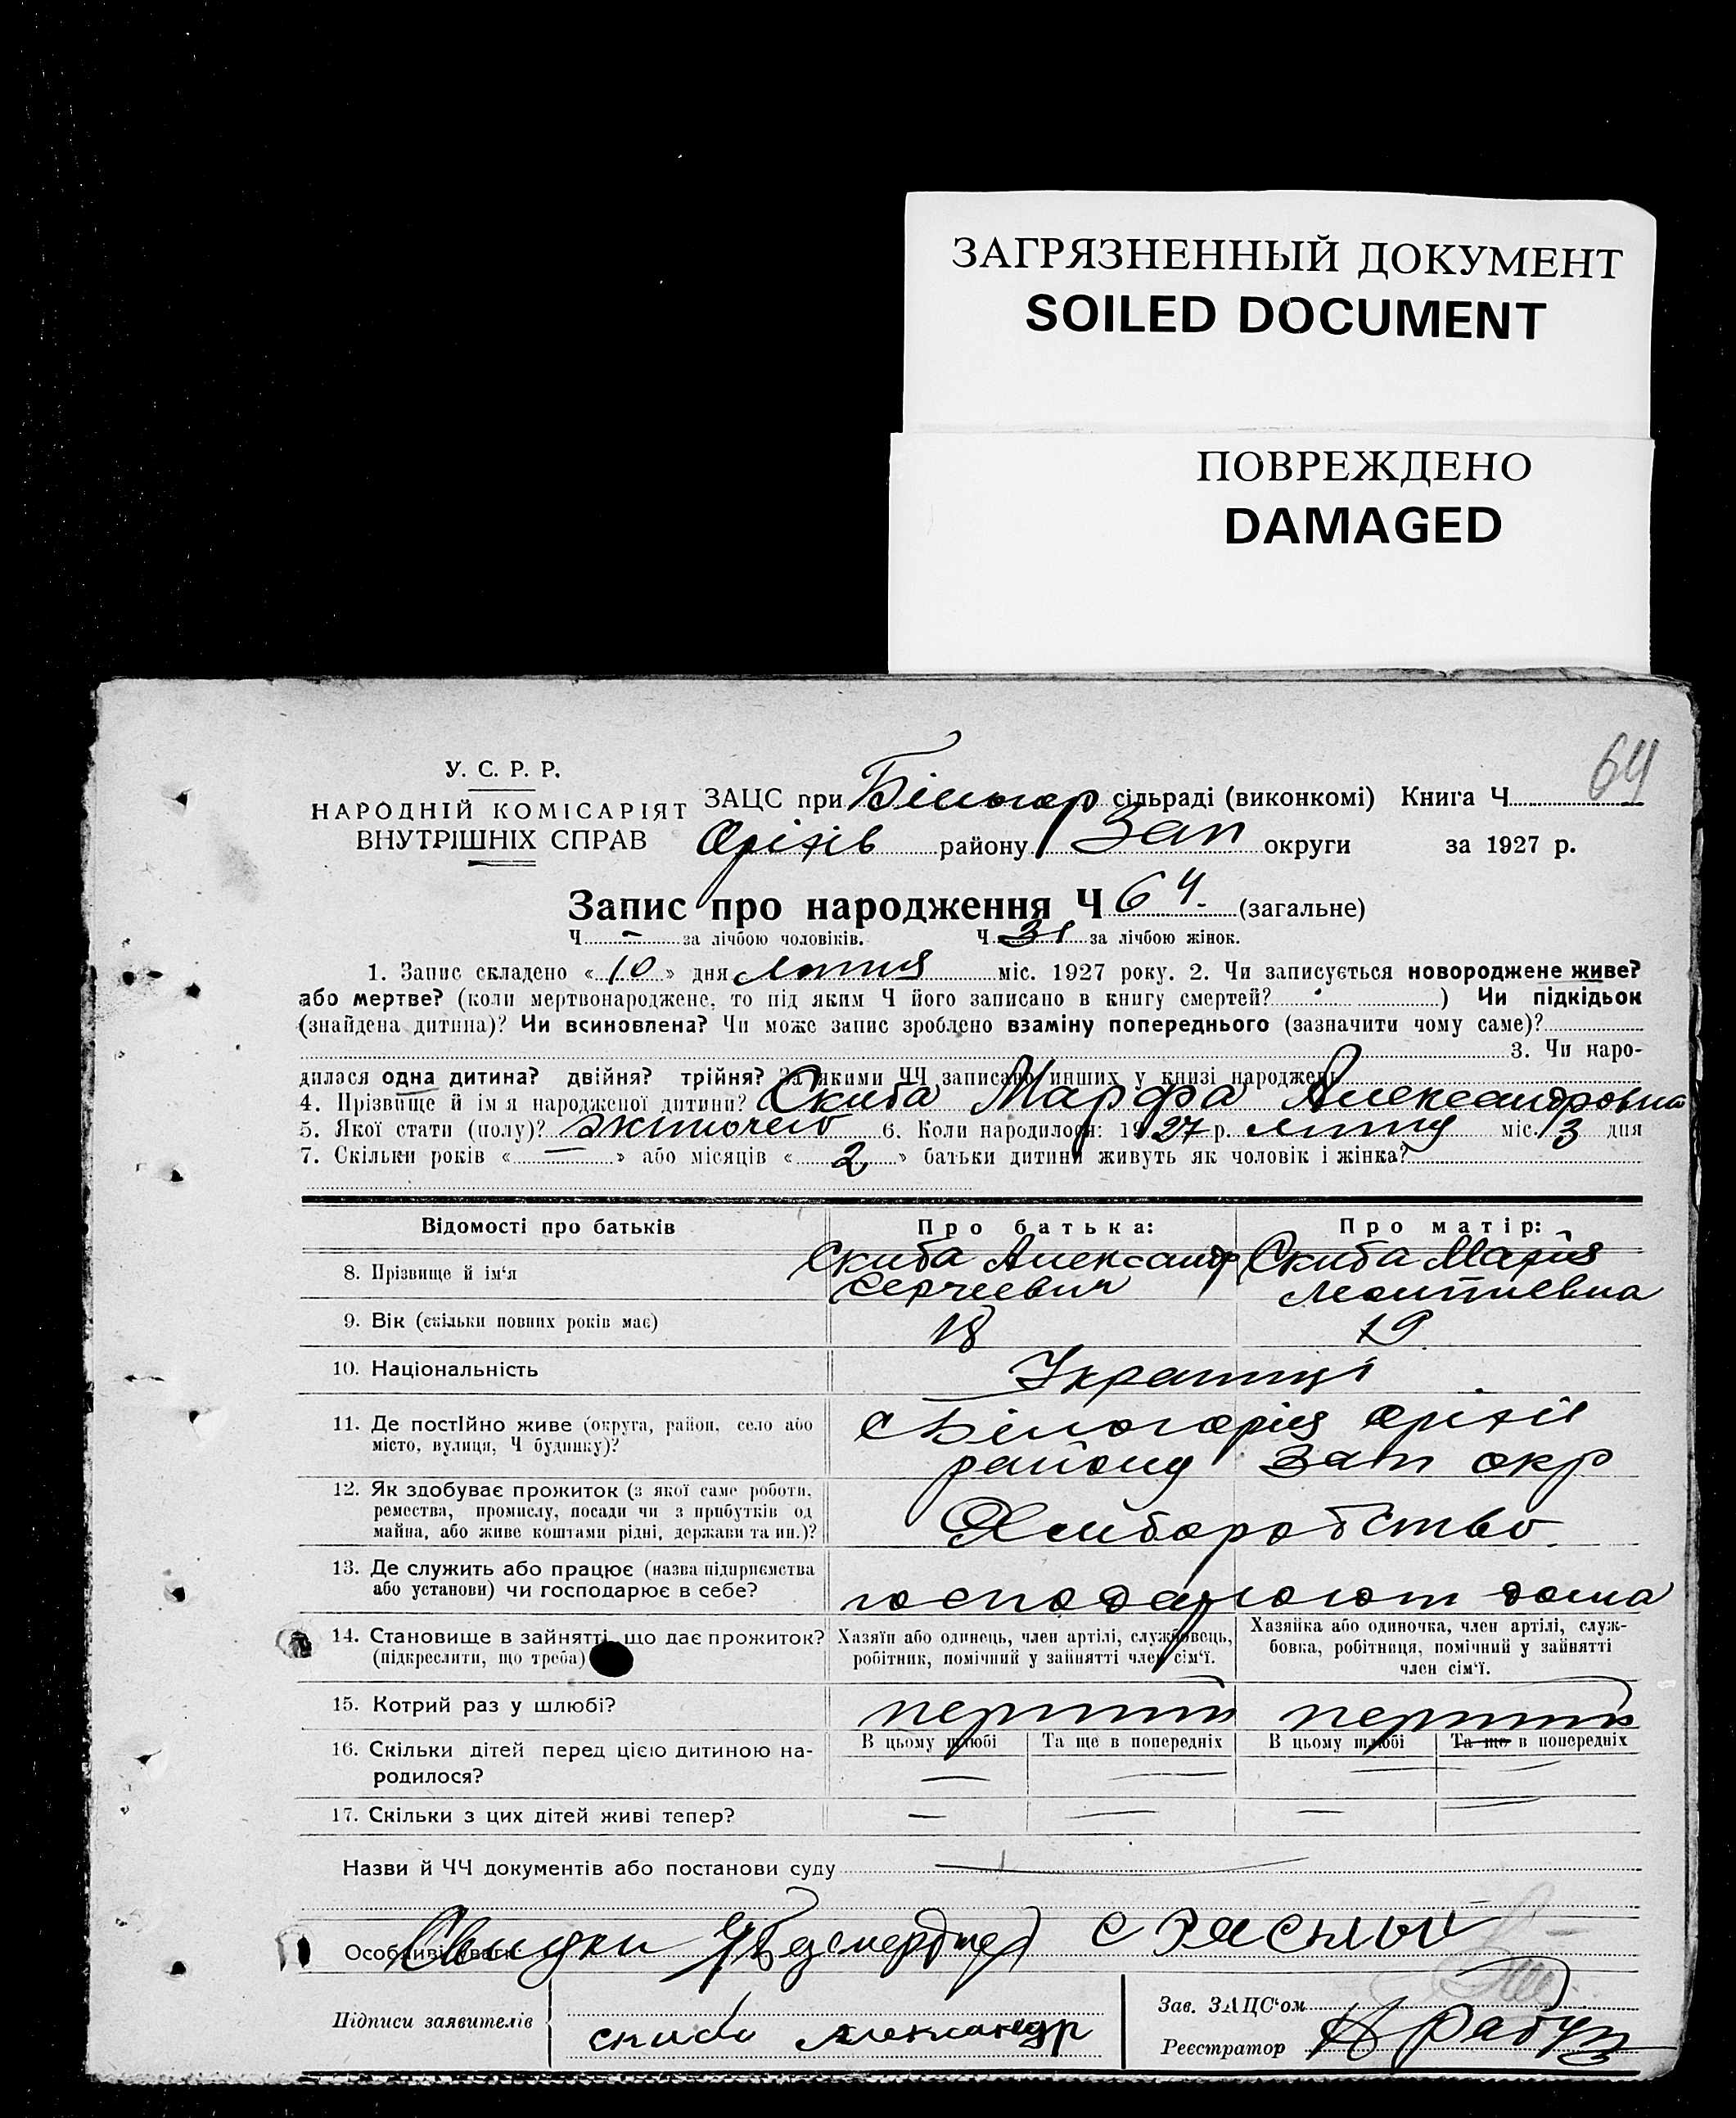 ЗАГРЯЗНЕННЫЙ ДОКУМЕНТ
SOILED DOCUMENT
ПОВРЕЖДЕНО
DAMAGED
64
У. С. Р. Р.
НАРОДНІЙ КОМІСАРІЯТ
ВНУТРІШНІХ СПРАВ
ЗАЦС при Білогор сільраді (виконкомі) Книга Ч
Оріхів району Зап округи за 1927 р.
Запис про народження Ч 64. (загальне)
Ч - за лічбою чоловіків. Ч 31 за лічбою жінок.
1. Запис складено « 10 » дня Липня міс. 1927 року. 2. Чи записується новороджене живе?
або мертве? (коли мертвонароджене, то під яким Ч його записано в книгу смертей? ) Чи підкідьок
(знайдена дитина)? Чи всиновлена? Чи може запис зроблено взаміну попереднього (зазначити чому саме)?
3. Чи наро-
дилася одна дитина? двійня? трійня? За якими ЧЧ записано инших у книзі народжень
4. Прізвище й ім я народженої дитини? Скиба Марфа Александровна
5. Якої стати (полу)? жіночего 6. Коли народилося: 1927 р. липня міс. 3 дня
7. Скільки років « — » або місяців « 2 » батьки дитини живуть як чоловік і жінка?
Відомості про батьків
Про батька:
Про матір:
8. Прізвище й ім'я
Скиба Александр
Сергеевич
Скиба Марія
Леонтиевна
9. Вік (скільки повних років має)
18
19
10. Національність
Українці
11. Де постійно живе (округа, район, село або
місто, вулиця, Ч будинку)?
с Білогорівця Оріхів
району Зап окр
12. Як здобуває прожиток (з якої саме роботи,
ремества, промислу, посади чи з прибутків од
майна, або живе коштами рідні, держави та ин.)?
Хліборобство.
13. Де служить або працює (назва підприємства
або установи) чи господарює в себе?
господарюют дома
14. Становище в зайнятті, що дає прожиток?
(підкреслити, що треба)
Хазяїн або одинець, член артілі, службовець,
робітник, помічний у зайнятті член сім'ї.
Хазяйка або одиночка, член артілі, служ-
бовка, робітниця, помічний у зайнятті
член сім'ї.
15. Котрий раз у шлюбі?
перший
перший
16. Скільки дітей перед цією дитиною на-
родилося?
В цьому шлюбі
Та ще в попередніх
В цьому шлюбі
Та ще в попередніх
— — — —
17. Скільки з цих дітей живі тепер?
— — — —
Назви й ЧЧ документів або постанови суду —
Особливі уваги: Свидки
Підписи заявителів
скиба александр
Зав. ЗАЦС'ом
Реєстратор